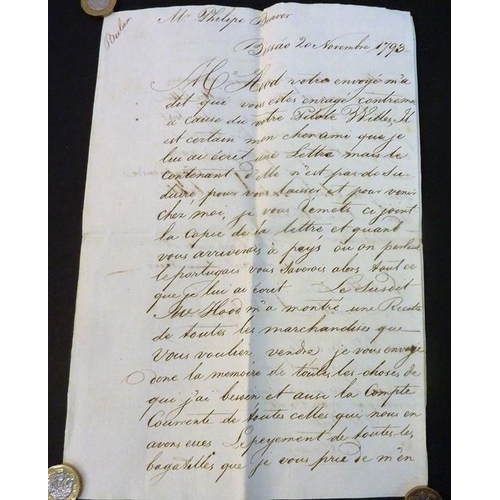 Bulam
Mr. Philipe Beaver
Bissáo 20 Novembre 1793
Mr. Hood votre envoyé m'a
dit que vous estes enragé contre moi
a cause du votre Pilote Willes, Il
est certain mon cher ami que je
lui ai écrit une Lettre mais le
contenant d'elle n'est pas de se
duire, pour vous laisser et pour venir
cher moi, je vous remets ci joint
la copie de la lettre et quant
vous arriverais à pays ou on parle
le portugais vous saverais alors tout ce
que je lui ai écrit Le Susdit
Mr Hood m'a montré une Recette
de toutes les marchandises que
vous vouliez vendre je vous envoye
donc la memoire de toutes les choses de
qui j'ai bessin et ausi la Compte
Courente de toutes celles qui nous en
avons eues Le peyement de toutes les
bagatilles que je vous prie de m'en